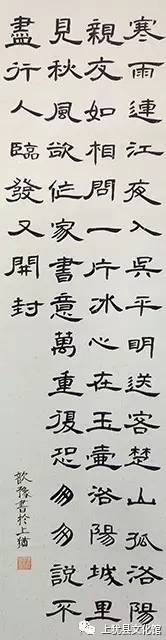 寒雨連江夜入吳平明送客楚山孤洛陽
親友如相問一片冰心在玉壺洛陽城里
見秋風欲作家書意萬重復恐匆匆說不
盡行人臨發又開封
歆豫書於上猶
上犹县文化馆